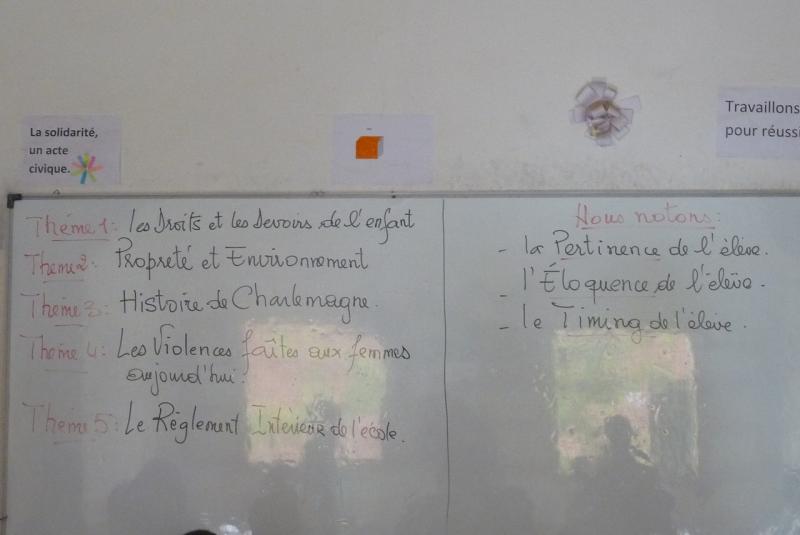 La solidarité,
un acte
civique.
Travaillons
pour réussi
Thème 1: les Droits et les Devoirs de l'enfant
Thème 2: Propreté et Environnement
Thème 3: Histoire de Charlemagne.
Thème 4: Les Violences faîtes aux femmes
aujourd'hui.
Thème 5: Le Règlement Intérieur de l'école.
Nous notons:
- la Pertinence de l'élève.
- l'Éloquence de l'élève.
- le Timing de l'élève.